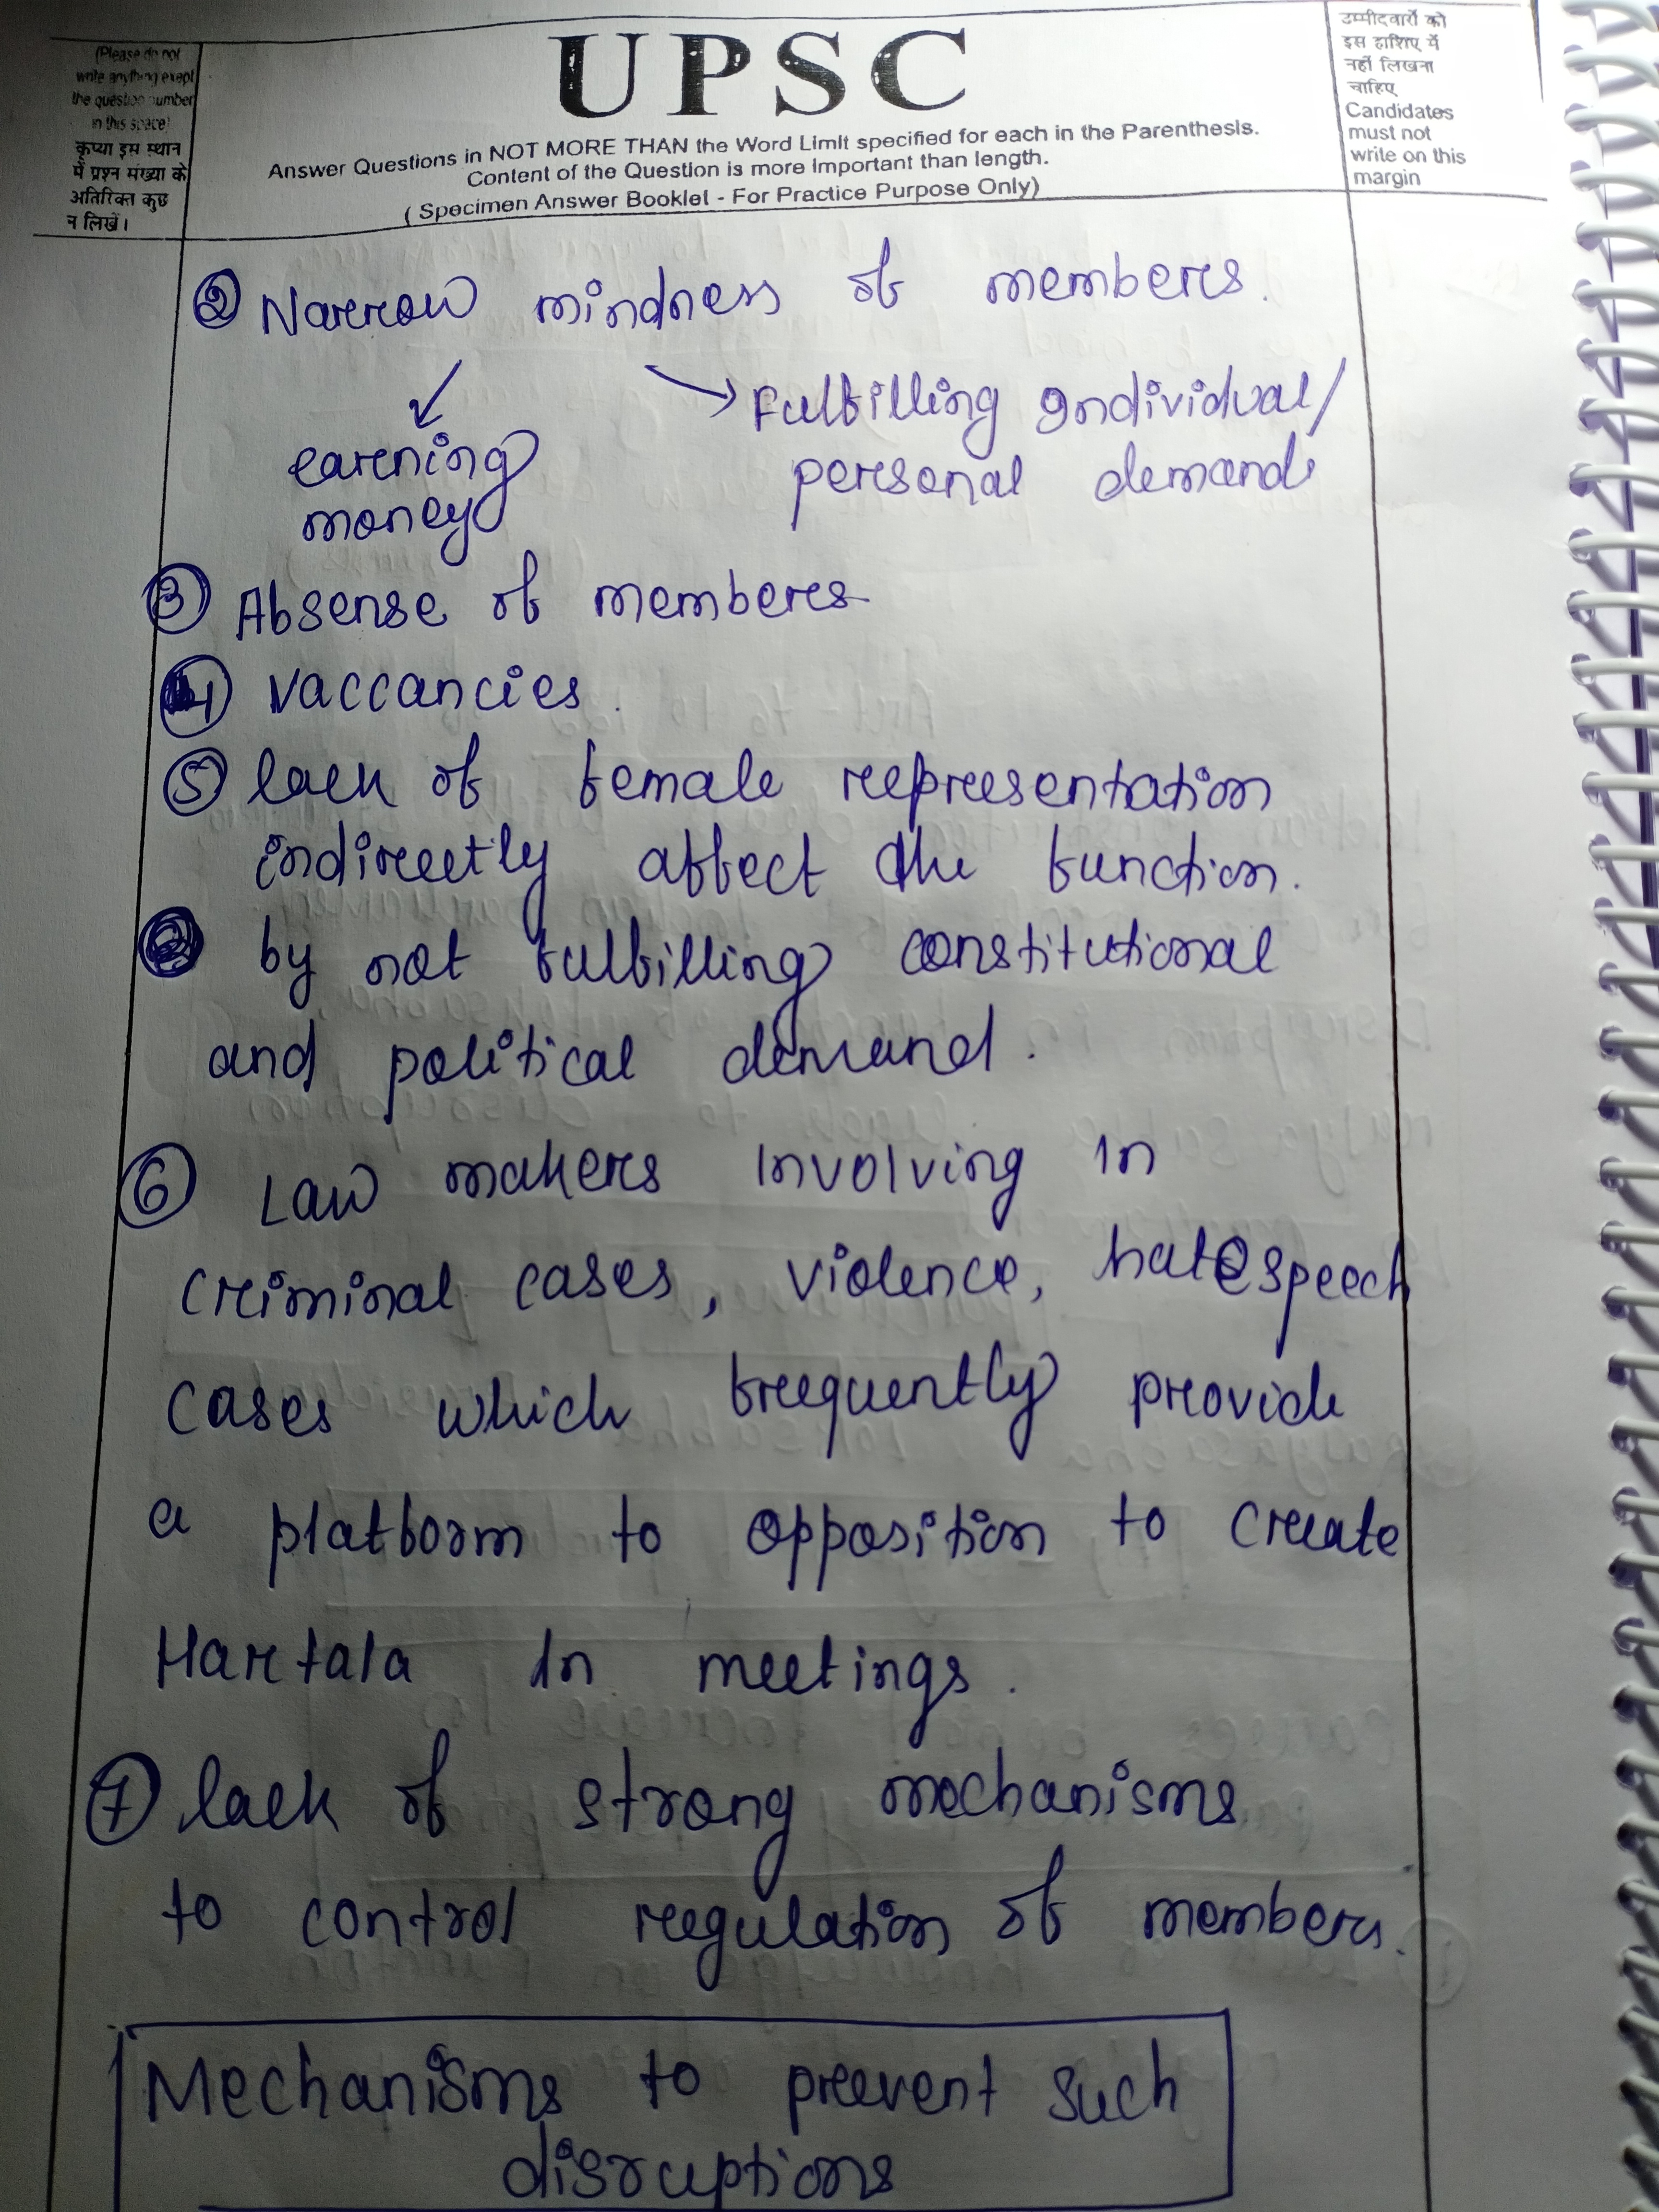 (Please do not
write anything exept
the question number
in this space)
कृप्या इस स्थान
में प्रश्न संख्या के
अतिरिक्त कुछ
न लिखें।
UPSC
Answer Questions in NOT MORE THAN the Word Limit specified for each in the Parenthesis.
Content of the Question is more Important than length.
( Specimen Answer Booklet - For Practice Purpose Only)
उम्मीदवारों को
इस हाशिए में
नहीं लिखना
चाहिए
Candidates
must not
write on this
margin
② Narrow mindness of members.
↙ ↘
earning
money
Fulfilling Individual/
personal demands
③ Absense of members
④ Vaccancies.
⑤ lack of female representation
indirectly affect the function.
by not fulfilling constitutional
and political demand.
⑥ Law makers involving in
criminal cases, violence, hate speech
cases which frequently provide
a platform to opposition to create
Hartala in meetings.
⑦ lack of strong mechanisms
to control regulation of members.
Mechanisms to prevent such
disruptions